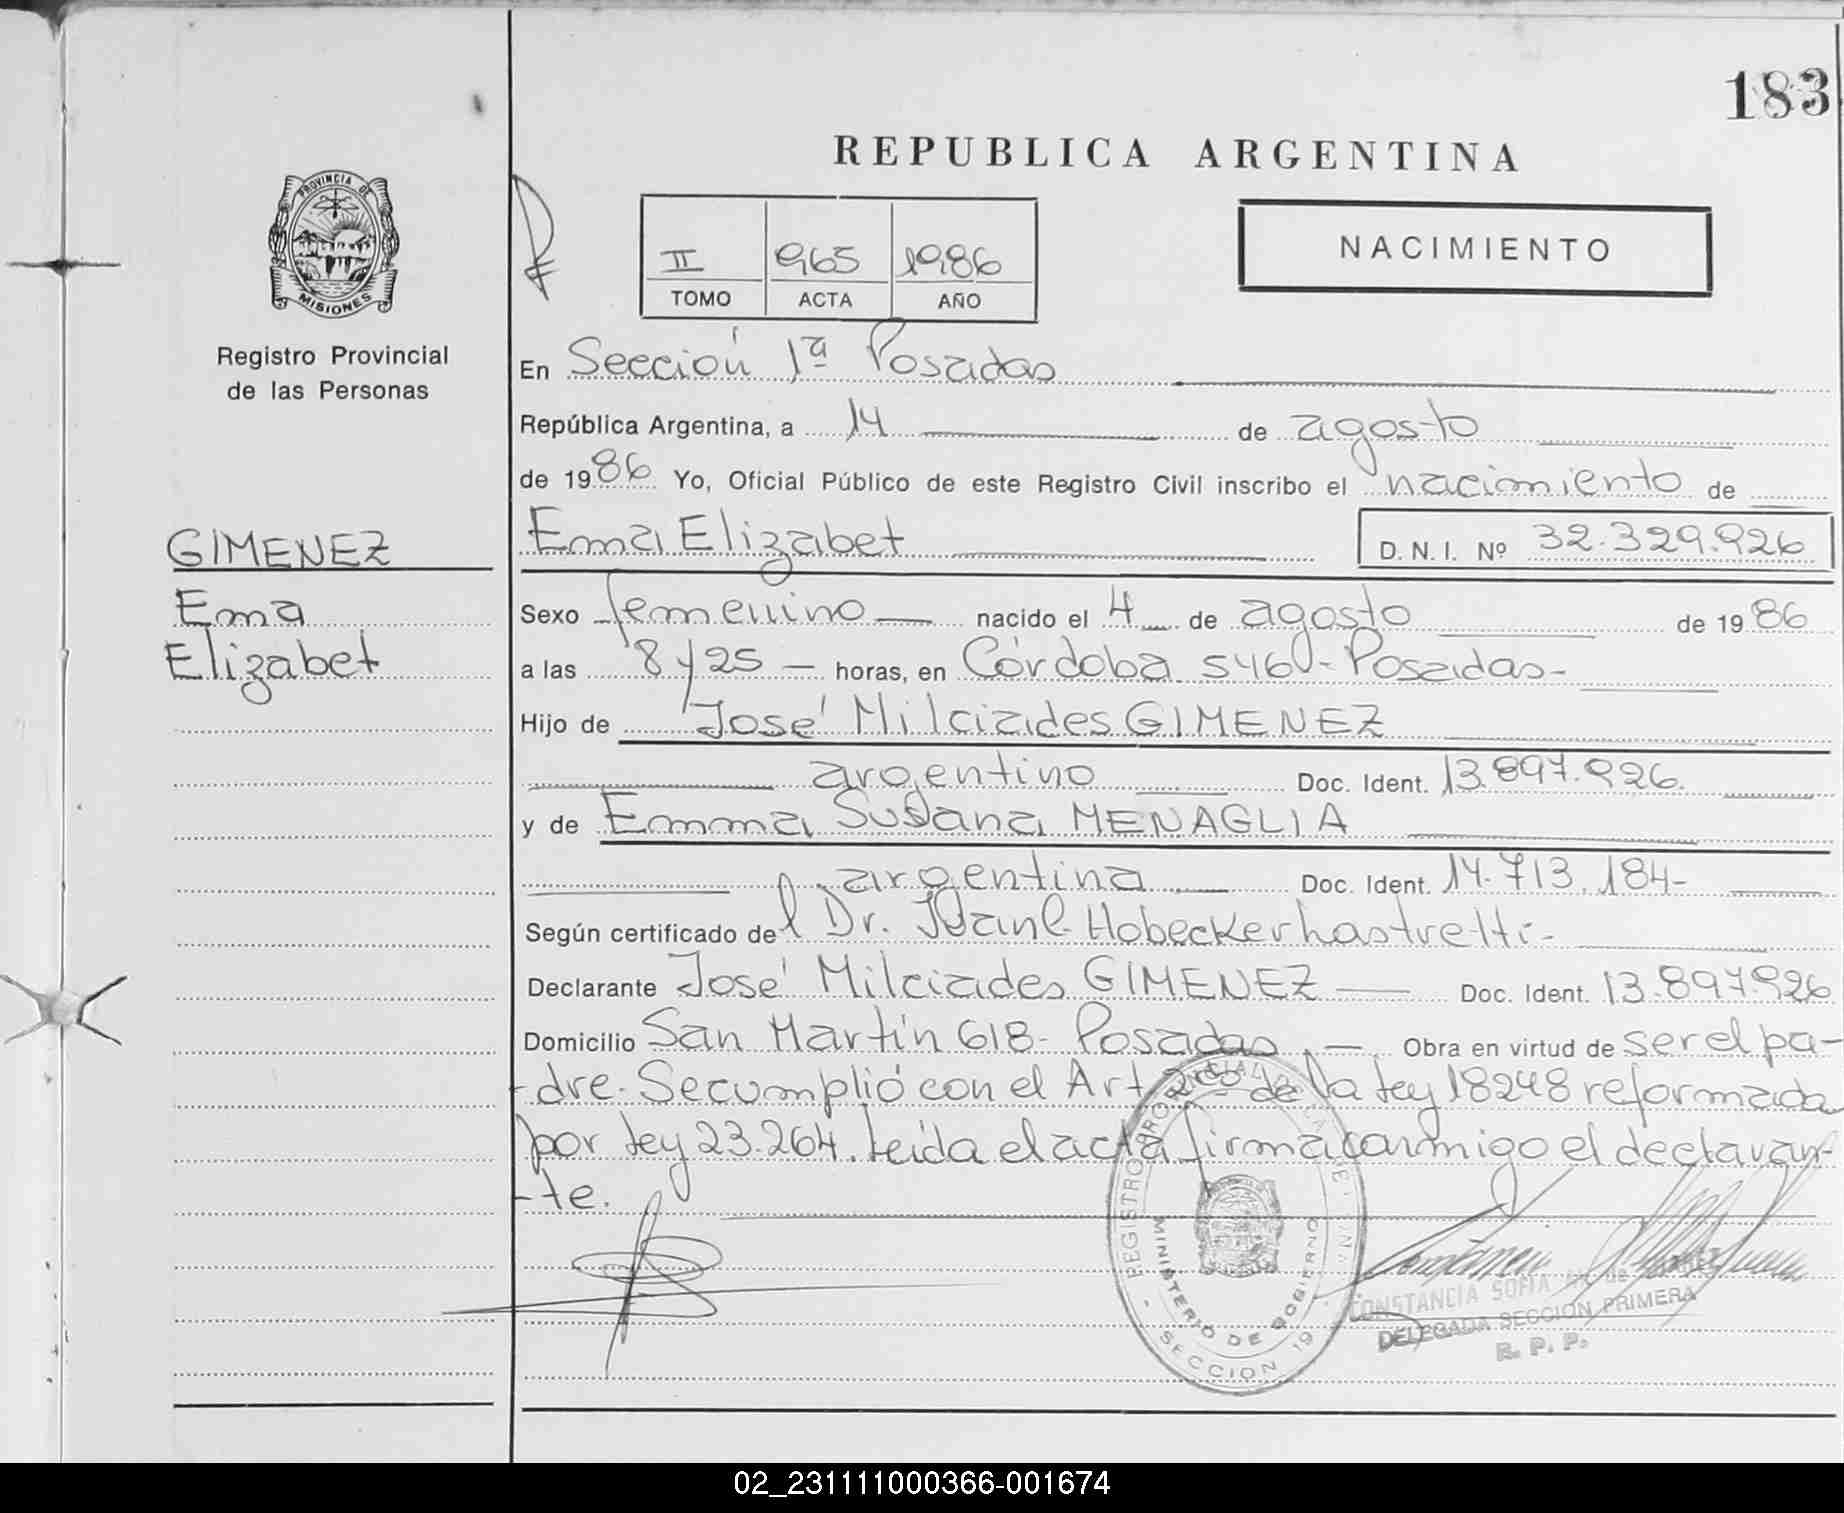 183
REPUBLICA ARGENTINA
PROVINCIA DE
MISIONES
Registro Provincial
de las Personas
II 965 1986
TOMO ACTA AÑO
NACIMIENTO
En Sección 1ª Posadas
República Argentina, a 14 de agosto
de 1986 Yo, Oficial Público de este Registro Civil inscribo el nacimiento de
GIMENEZ
Ema
Elizabet
Ema Elizabet D. N. I. Nº 32.329.926
Sexo femenino nacido el 4 de agosto de 1986
a las 8 y 25 — horas, en Córdoba 546 - Posadas -
Hijo de José Milciades GIMENEZ
argentino Doc. Ident. 13.897.926.
y de Emma Susana MENAGLIA
argentina Doc. Ident. 14.713.184-
Según certificado del Dr. -
Declarante José Milciades GIMENEZ — Doc. Ident. 13.897926
Domicilio San Martín 618- Posadas. — Obra en virtud de ser el pa-
-dre. Se cumplió con el Art de la Ley 18248 reformada
por Ley 23.264. Leída el acta firma conmigo el declaran-
-te.
REGISTRO PROVINCIAL DE
MINISTERIO DE GOBIERNO
- SECCION 1ª
CONSTANCIA SOFIA de
DELEGADA SECCION PRIMERA
R. P. P.
02_231111000366-001674